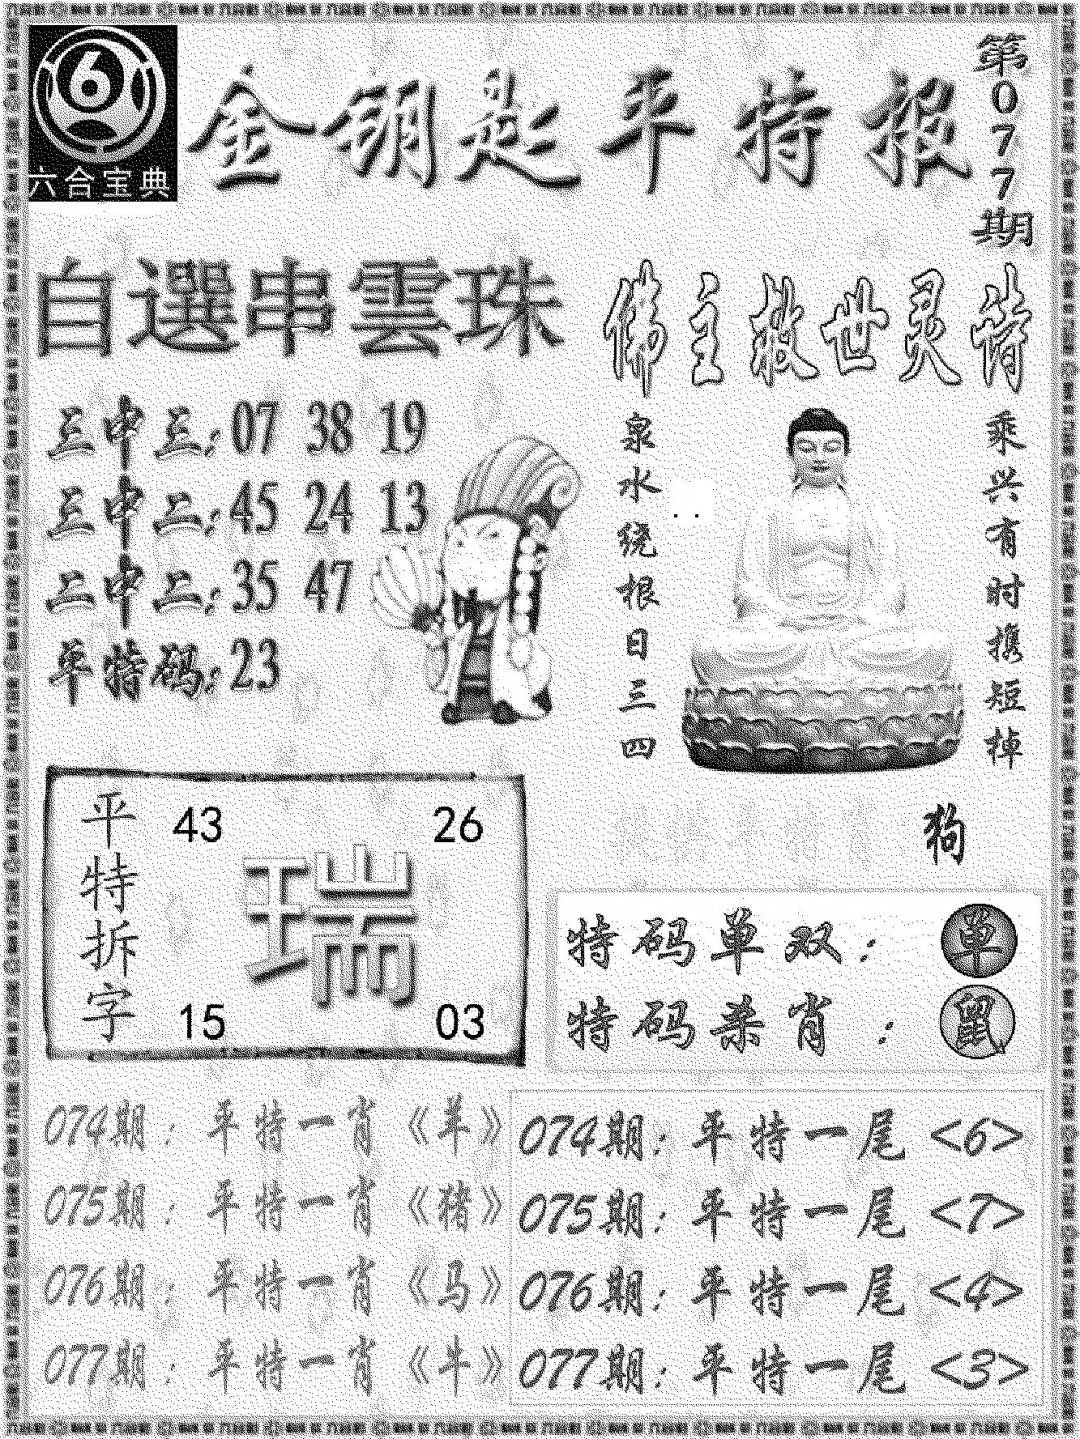 6
六合宝典
金钥匙平特报
第077期
自選串雲珠
佛主救世灵诗
三中三:07 38 19
三中二:45 24 13
二中二:35 47
平特码:23
乘兴有时携短棹
泉水绕根日三四
狗
平特拆字
43 26
瑞
15 03
特码单双：单
特码杀肖：鼠
074期：平特一肖《羊》
075期：平特一肖《猪》
076期：平特一肖《马》
077期：平特一肖《牛》
074期：平特一尾<6>
075期：平特一尾<7>
076期：平特一尾<4>
077期：平特一尾<3>